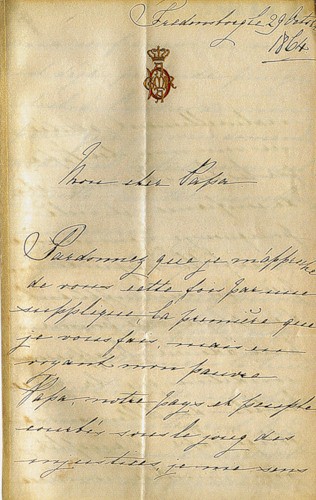 Fredensborg le 29 Octob
1864
Mon cher Papa
Pardonnez que je m'approche
de vous cette fois par une
supplique, la première que
je vous fais, mais en
voyant mon pauvre
Papa, notre pays et peuple
courbés sous le joug des
injustices, je me sens